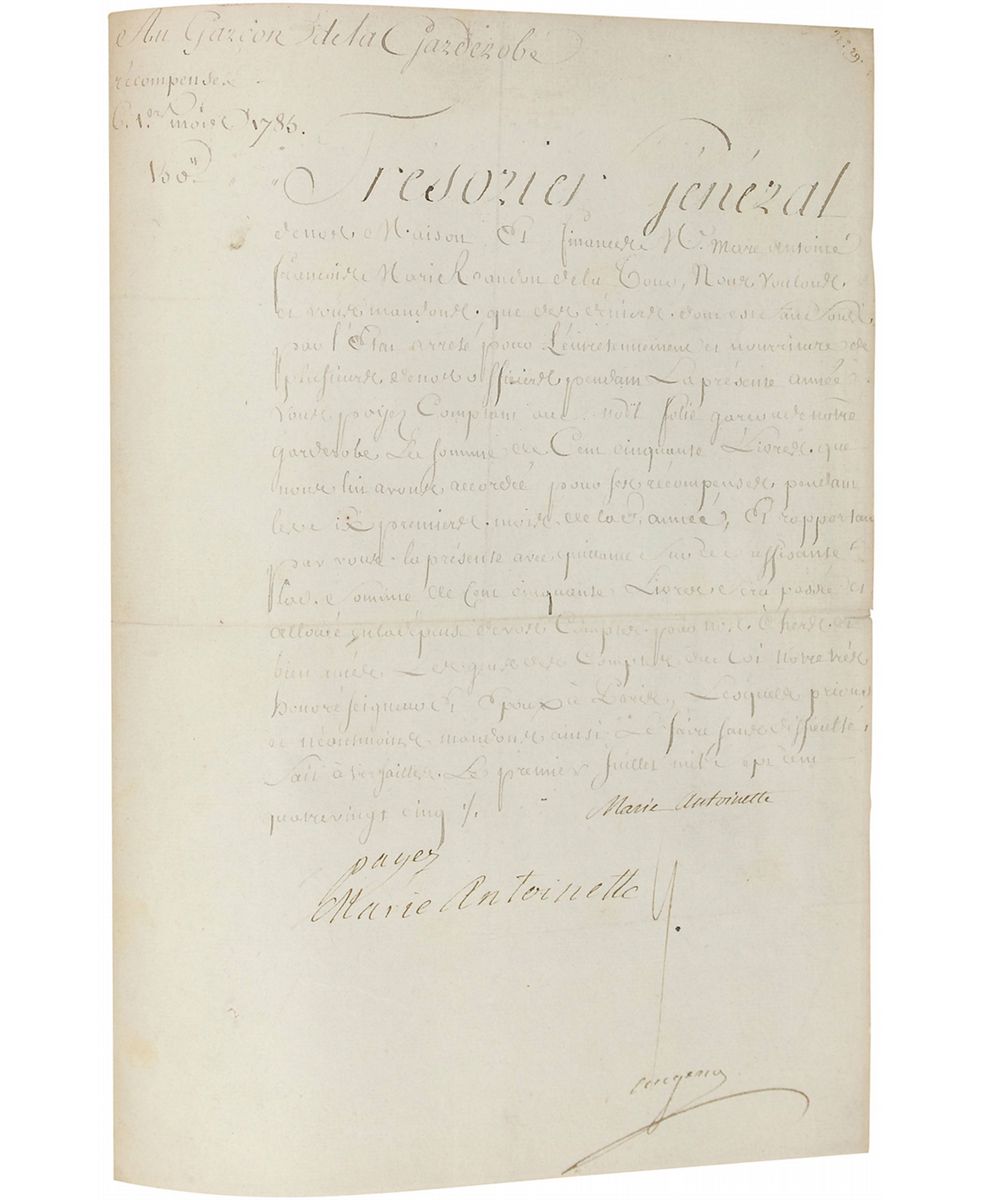 Au Garçon de la Garderobe
récompenses
6. 1.ers mois 1785.
150.
Tresorier Général
de nos Maison Et finances M. Marc Antoine
françois Marie Randon de la Tour, Nous voulons
et vous mandons, que des déniers dont est fait fond
par l'Etat arrété pour L'entretennement et nourriture de
plusieurs de nos officiers pendant La présente année
vous payez Comptant au S. Noël Jolié garçon de nôtre
garderobe La somme de Cent cinquante Livres que
nous lui avons accordré pour ses récompenses pendant
les six premiers mois de lad. année, Et rapportant
par vous la présente avec quittance sur ce suffisante
lad. somme de Cent cinquante Livres sera passée et
allouée en la dépense de vos Comptes par nos Chers et
bien amés Les gens des Comptes du Roi notre très
honoré seigneur Et Epoux à Paris, Lesquels prions
et néantmoins mandons ainsi Le faire sans difficulté;
fait à Versailles Le premier Juillet mil sept cent
quatrevingt cinq ./.
Marie Antoinette
payez
Marie Antoinette